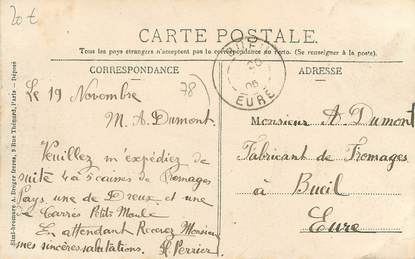 20 t
CARTE POSTALE
Tous les pays étrangers n'acceptent pas la correspondance au recto. (Se renseigner à la poste).
CORRESPONDANCE
ADRESSE
EURE
Le 19 Novembre
78
M. A. Dumont.
Veuillez m'expédiez de
suite 4 à 5 caisses de Fromages
Pays, une de Dreux et une
Carrés Petits Moule
En attendant Recevez Monsieur
mes sincères salutations. Perrier
Monsieur A. Dumont
Fabricant de Fromages
à Bueil
Eure
Simi-bromure A. Breger frères, 9 Rue Thénard, Paris — Déposé